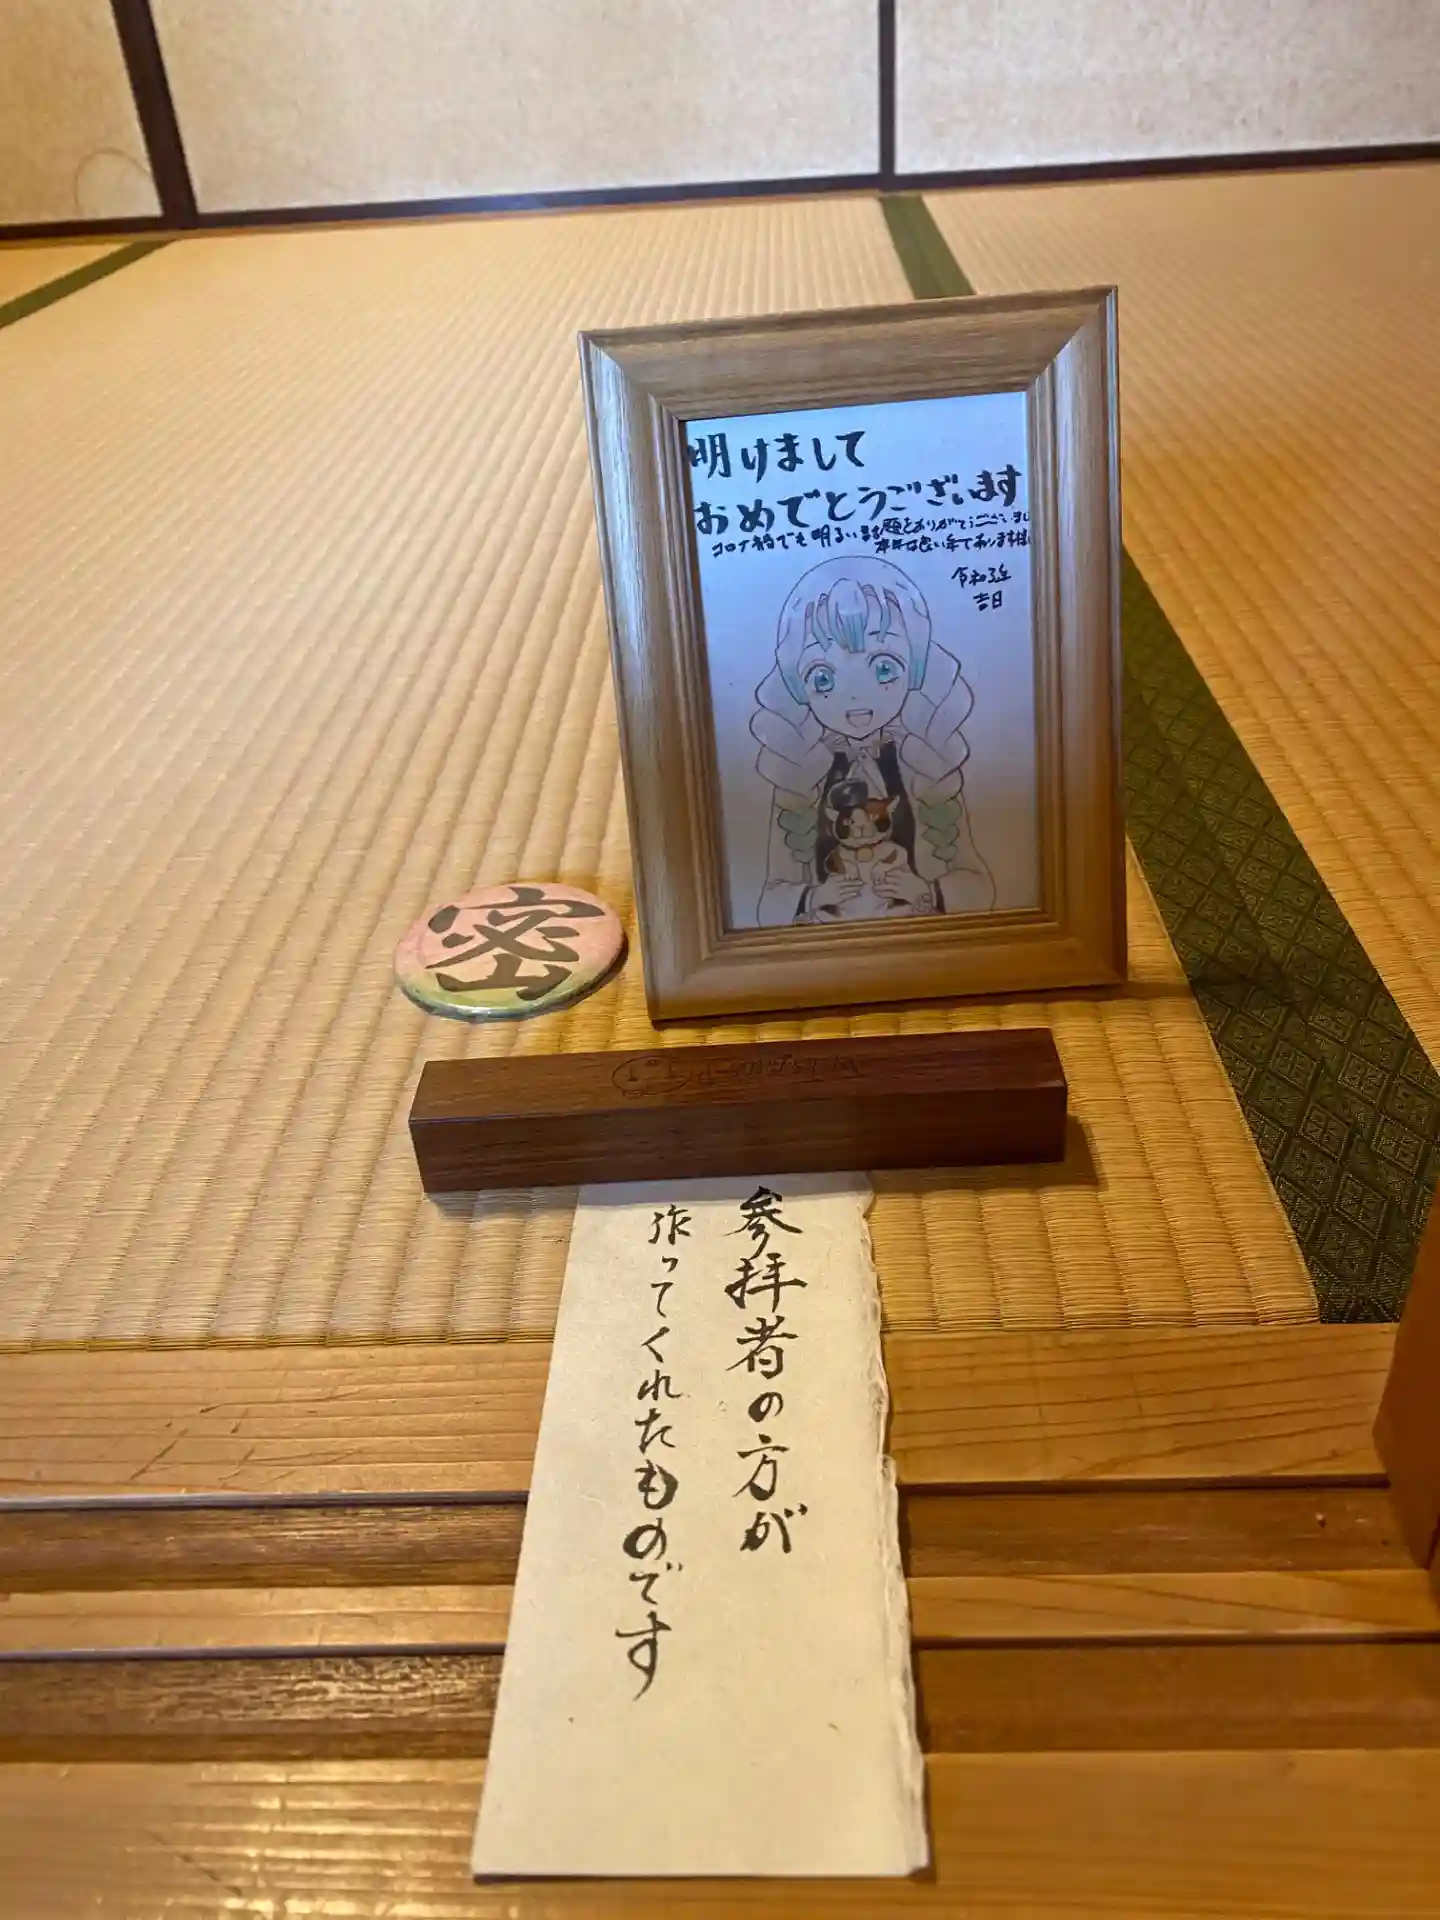 明けまして
おめでとうございます
コロナ禍でも明るい話題をありがとうございまし
本年は良い年であります様
令和3年
吉日
密
参拝者の方が
作ってくれたものです